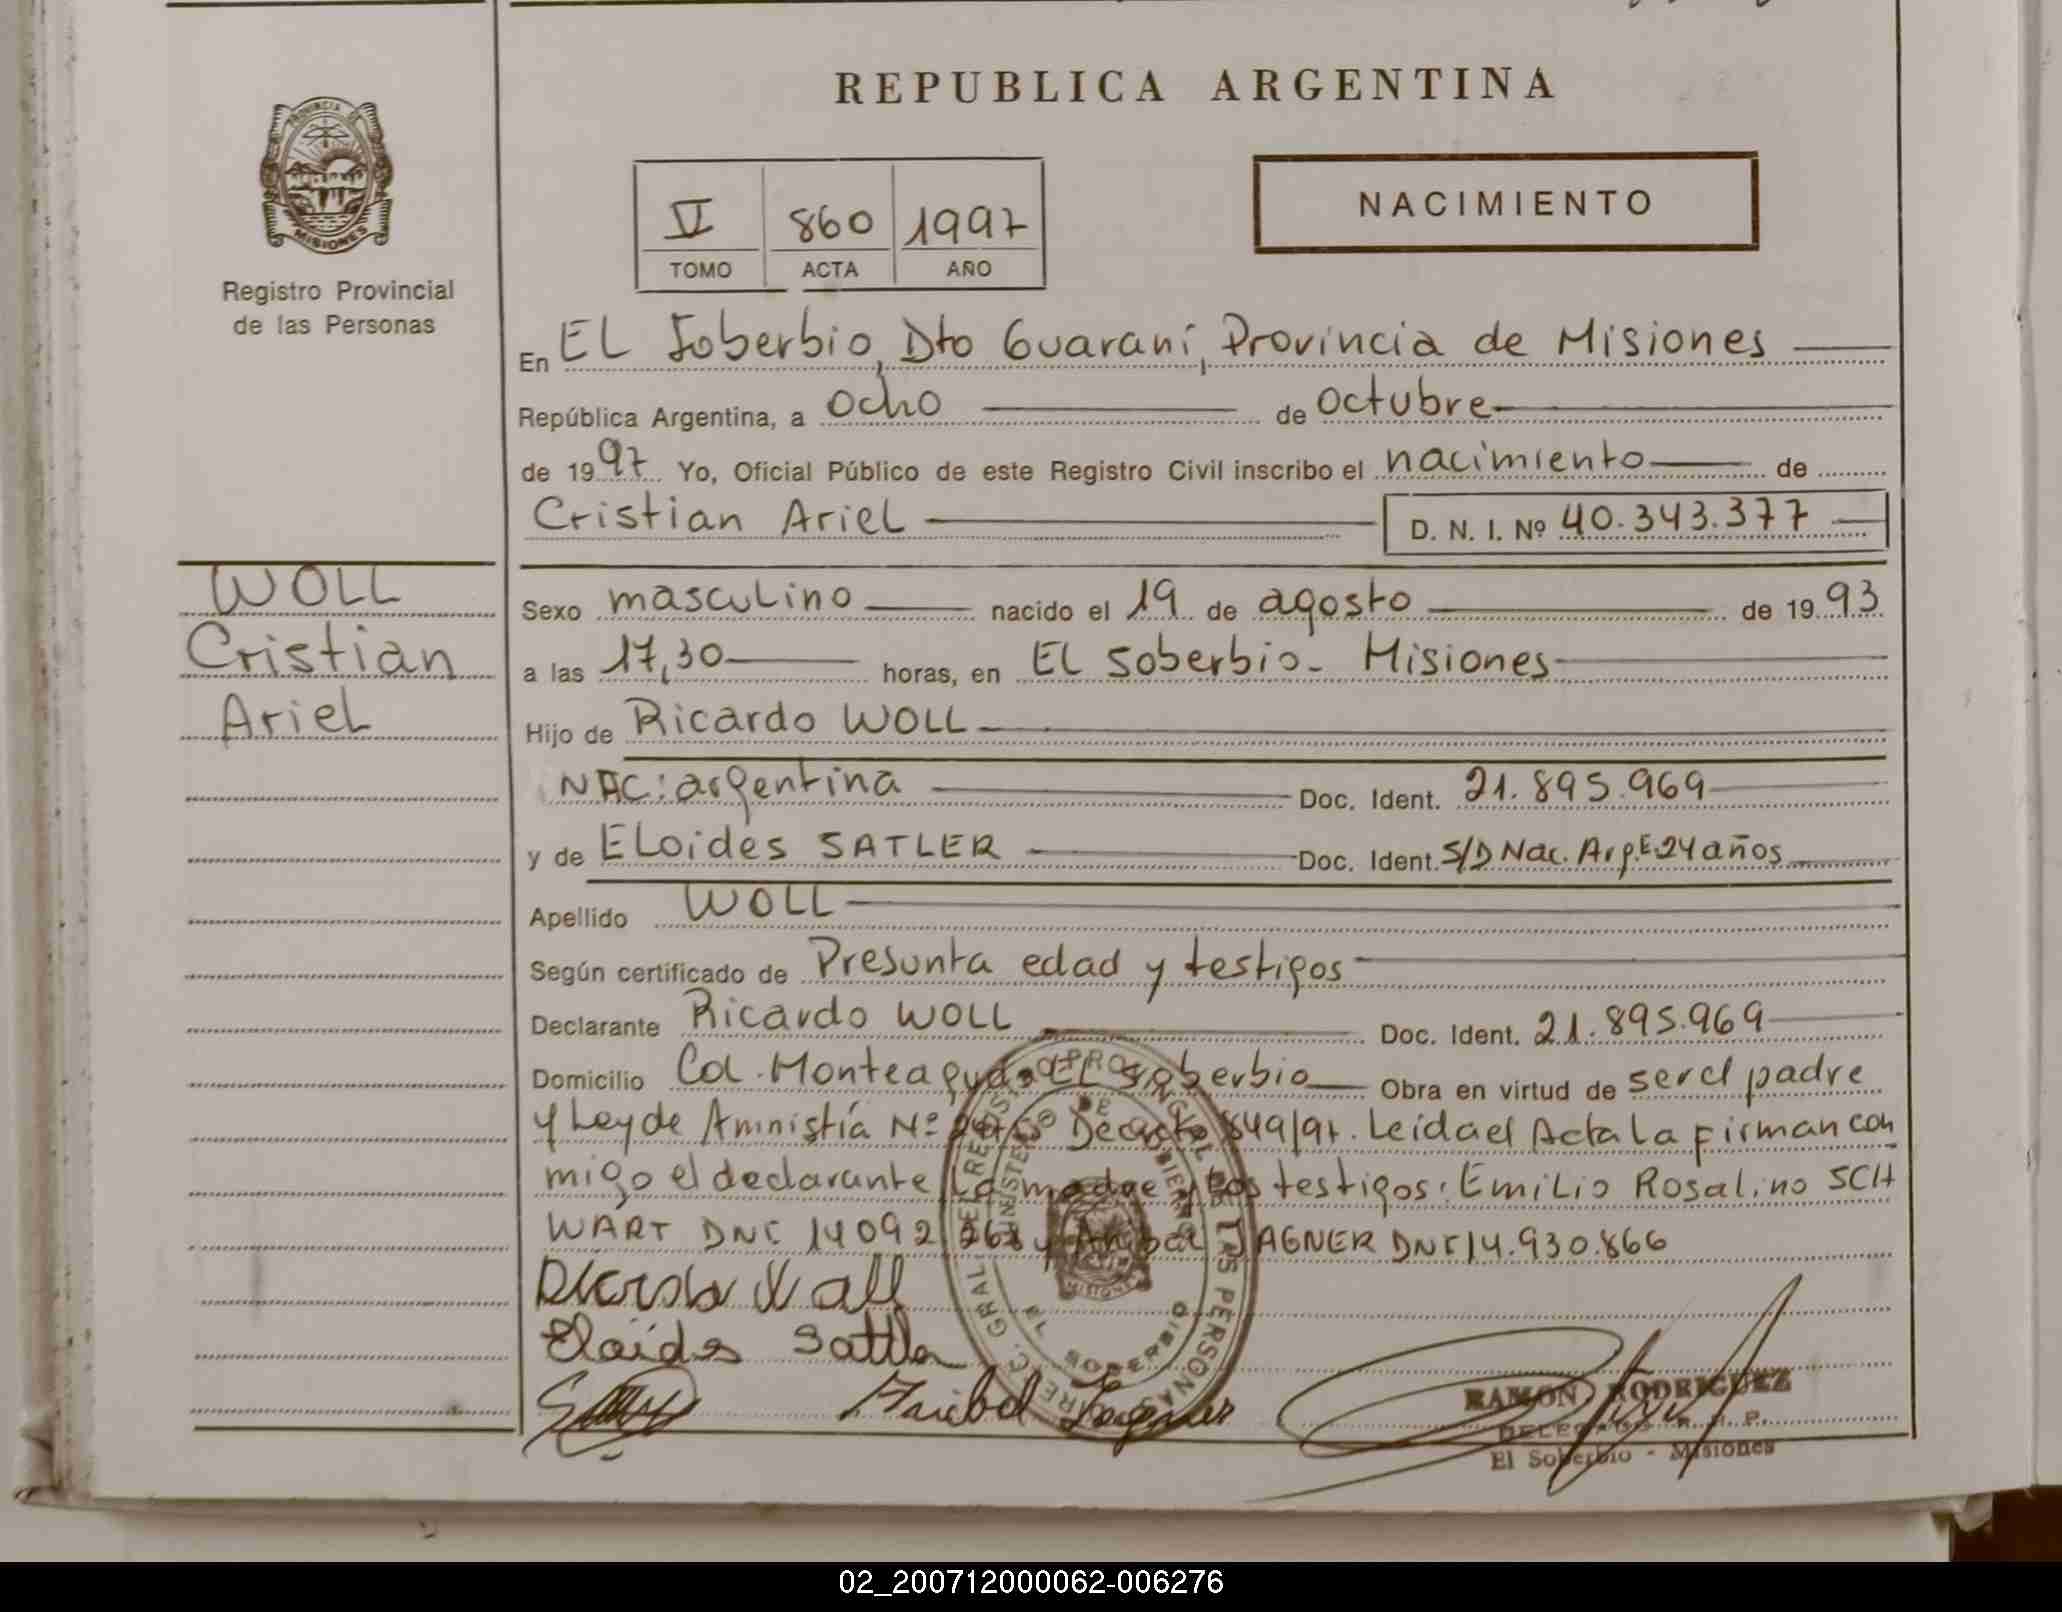 REPUBLICA ARGENTINA
PROVINCIA DE
MISIONES
Registro Provincial
de las Personas
VI 860 1997
TOMO ACTA AÑO
NACIMIENTO
En EL Soberbio, Dto Guaraní, Provincia de Misiones
República Argentina, a ocho de octubre
de 1997 Yo, Oficial Público de este Registro Civil inscribo el nacimiento de
Cristian Ariel D. N. I. Nº 40.343.377
WOLL
Cristian
Ariel
Sexo masculino nacido el 19 de agosto de 1993
a las 17,30 horas, en EL Soberbio - Misiones
Hijo de Ricardo WOLL
NAC: argentina Doc. Ident. 21.895.969
y de ELoides SATLER Doc. Ident. S/D Nac. Arg. E 24 años
Apellido WOLL
Según certificado de Presunta edad y testigos
Declarante Ricardo WOLL Doc. Ident. 21.895.969
Domicilio Col. Monteagudo EL Soberbio Obra en virtud de ser el padre
y Ley de Amnistía Nº Decreto 849/97. Leida el Acta La firman con
migo el declarante La madre y Los testigos: Emilio Rosalino SCH
WART DNI 14092 y Anibal JAGNER DNI 14.930.866
Eloides Sattler
RAMON RODRIGUEZ
DELEGADO R. P.
El Soberbio - Misiones
02_200712000062-006276